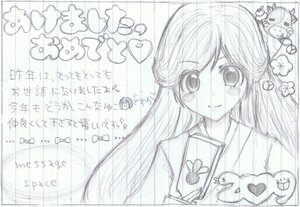 あけましたっ
おめでと♡
昨年は、とってもとっても
お世話になりましたあ
今年もどうか、こんなゆこですが
仲良くして下さると嬉しいです
message
space